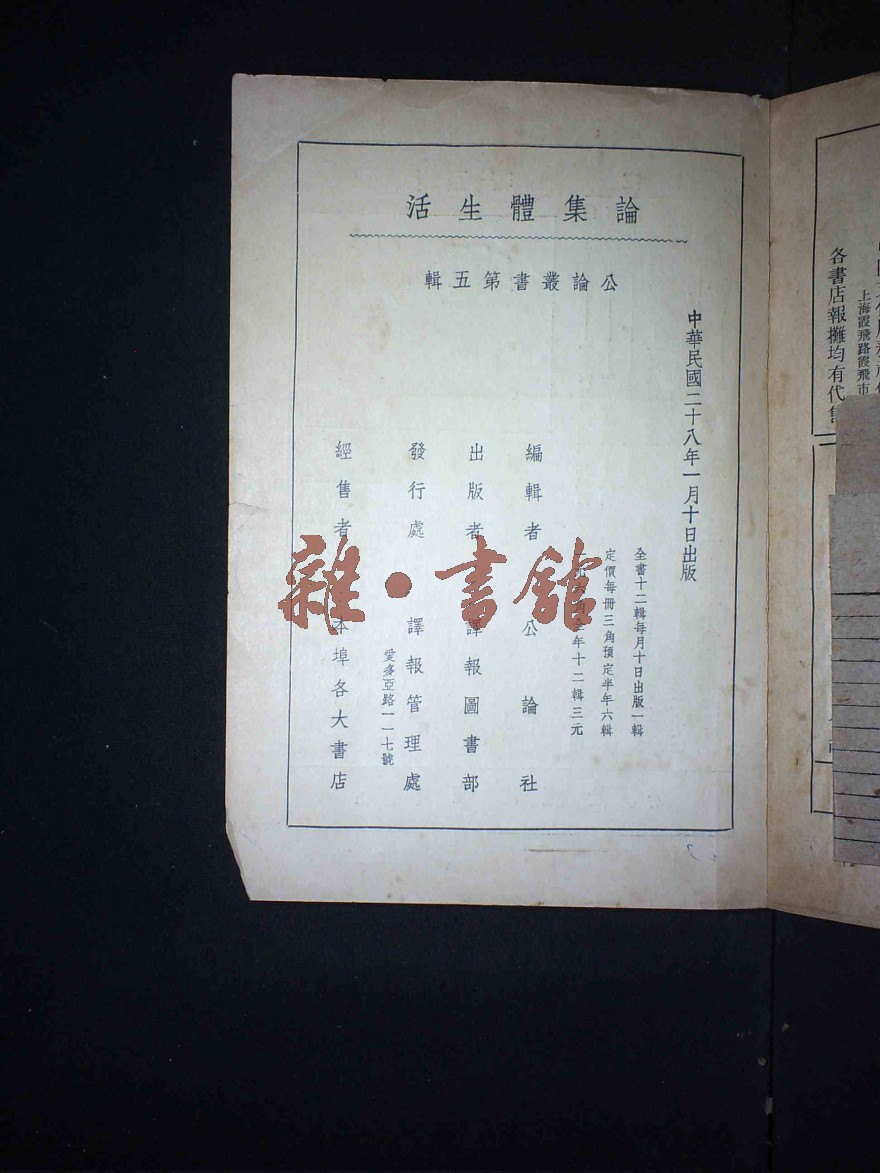 論集體生活
公論叢書第五輯
中華民國二十八年一月十日出版
全書十二輯每月十日出版一輯
定價每冊三角預定半年六輯
六角全年十二輯三元
編輯者 公論社
出版者 譯報圖書部
發行處 譯報管理處
愛多亞路一一七號
經售者 本埠各大書店
雜·書館
上海霞飛路霞飛市
各書店報攤均有代售